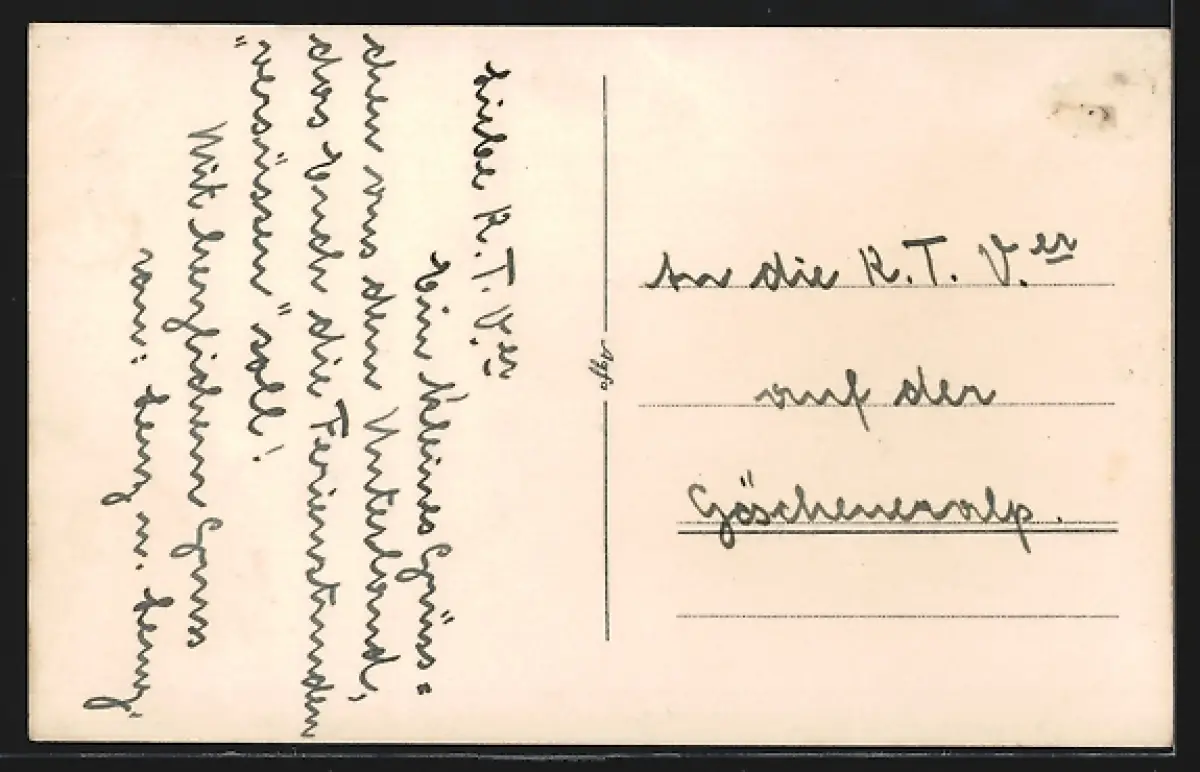 Liebe K. T. V.er
Ein kleines Grüss=
chen aus dem Unterland,
das Euch die Ferienstunden
"versüssen" soll!
Mit herzlichem Gruss
von: u.
Agfa
An die K. T. V.er
auf der
Göscheneralp.